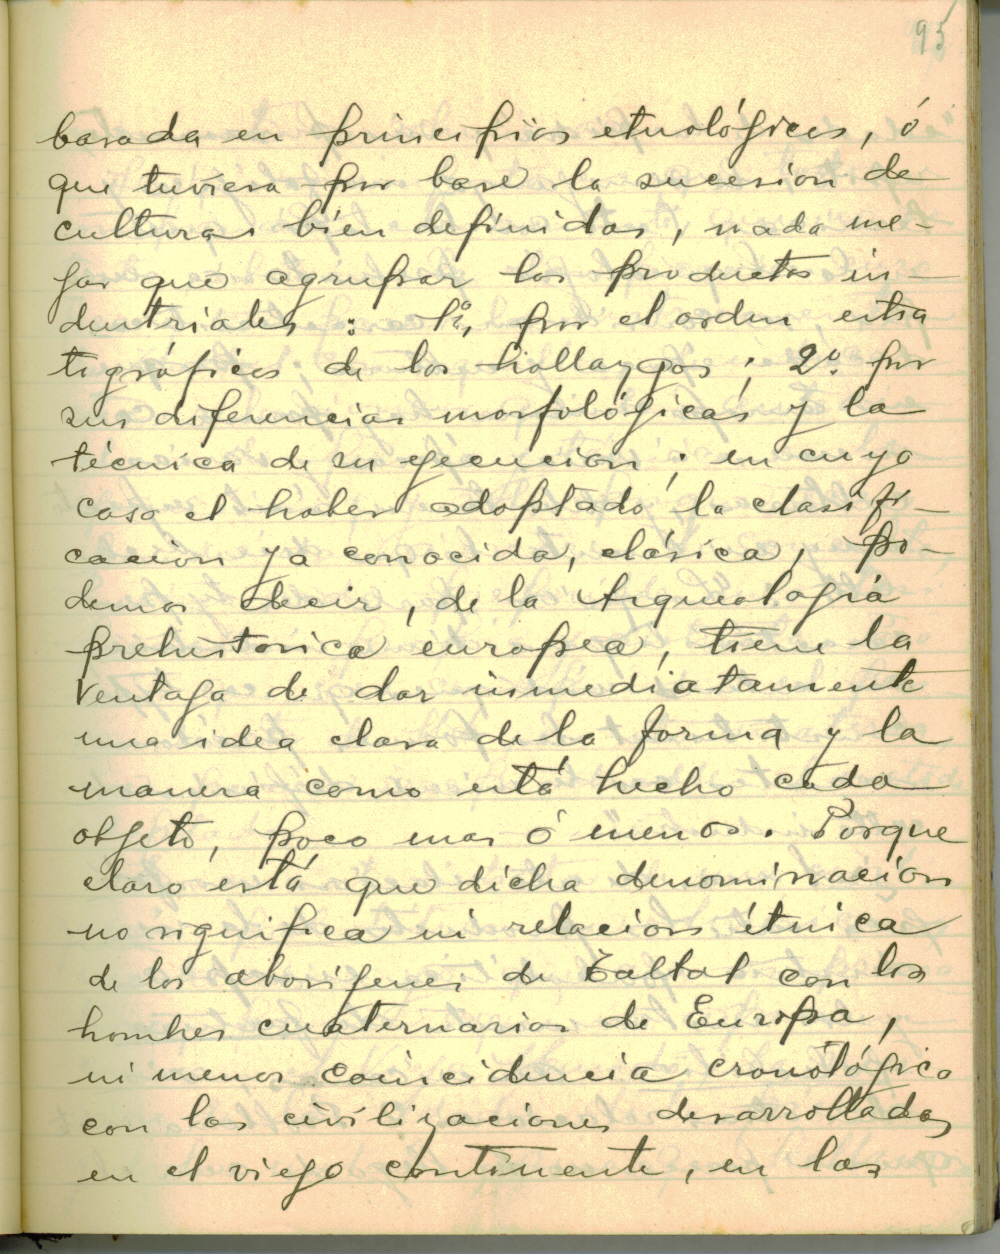 95
basada en principios etnológicos, ó
que tuviera por base la sucesion de
culturas bien definidas, nada me-
jor que agrupar los productos in-
dustriales : 1º, por el orden estra
tigráfico de los hallazgos ; 2º por
sus diferencias morfológicas y la
técnica de su ejecucion ; en cuyo
caso el haber adoptado la clasifi-
cacion ya conocida, clásica, po-
demos decir, de la Arqueologia
prehistorica europea, tiene la
ventaja de dar inmediatamente
una idea clara de la forma y la
manera como está hecho cada
objeto, poco mas ó menos. Porque
claro está que dicha denominacion
no significa ni relacion étnica
de los aborígenes de Taltal con los
hombres cuaternarios de Europa,
ni menos coincidencia cronológica
con las civilizaciones desarrolladas
en el viejo continente, en las